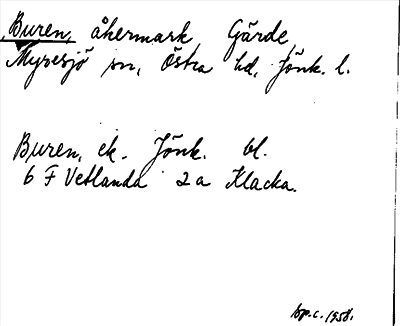 Buren, åkermark Gärde,
Myresjö sn, Östra hd, Jönk. l.
Buren, ek. Jönk. bl.
6 F Vetlanda 2a Klacka.
sp.c. 1958.